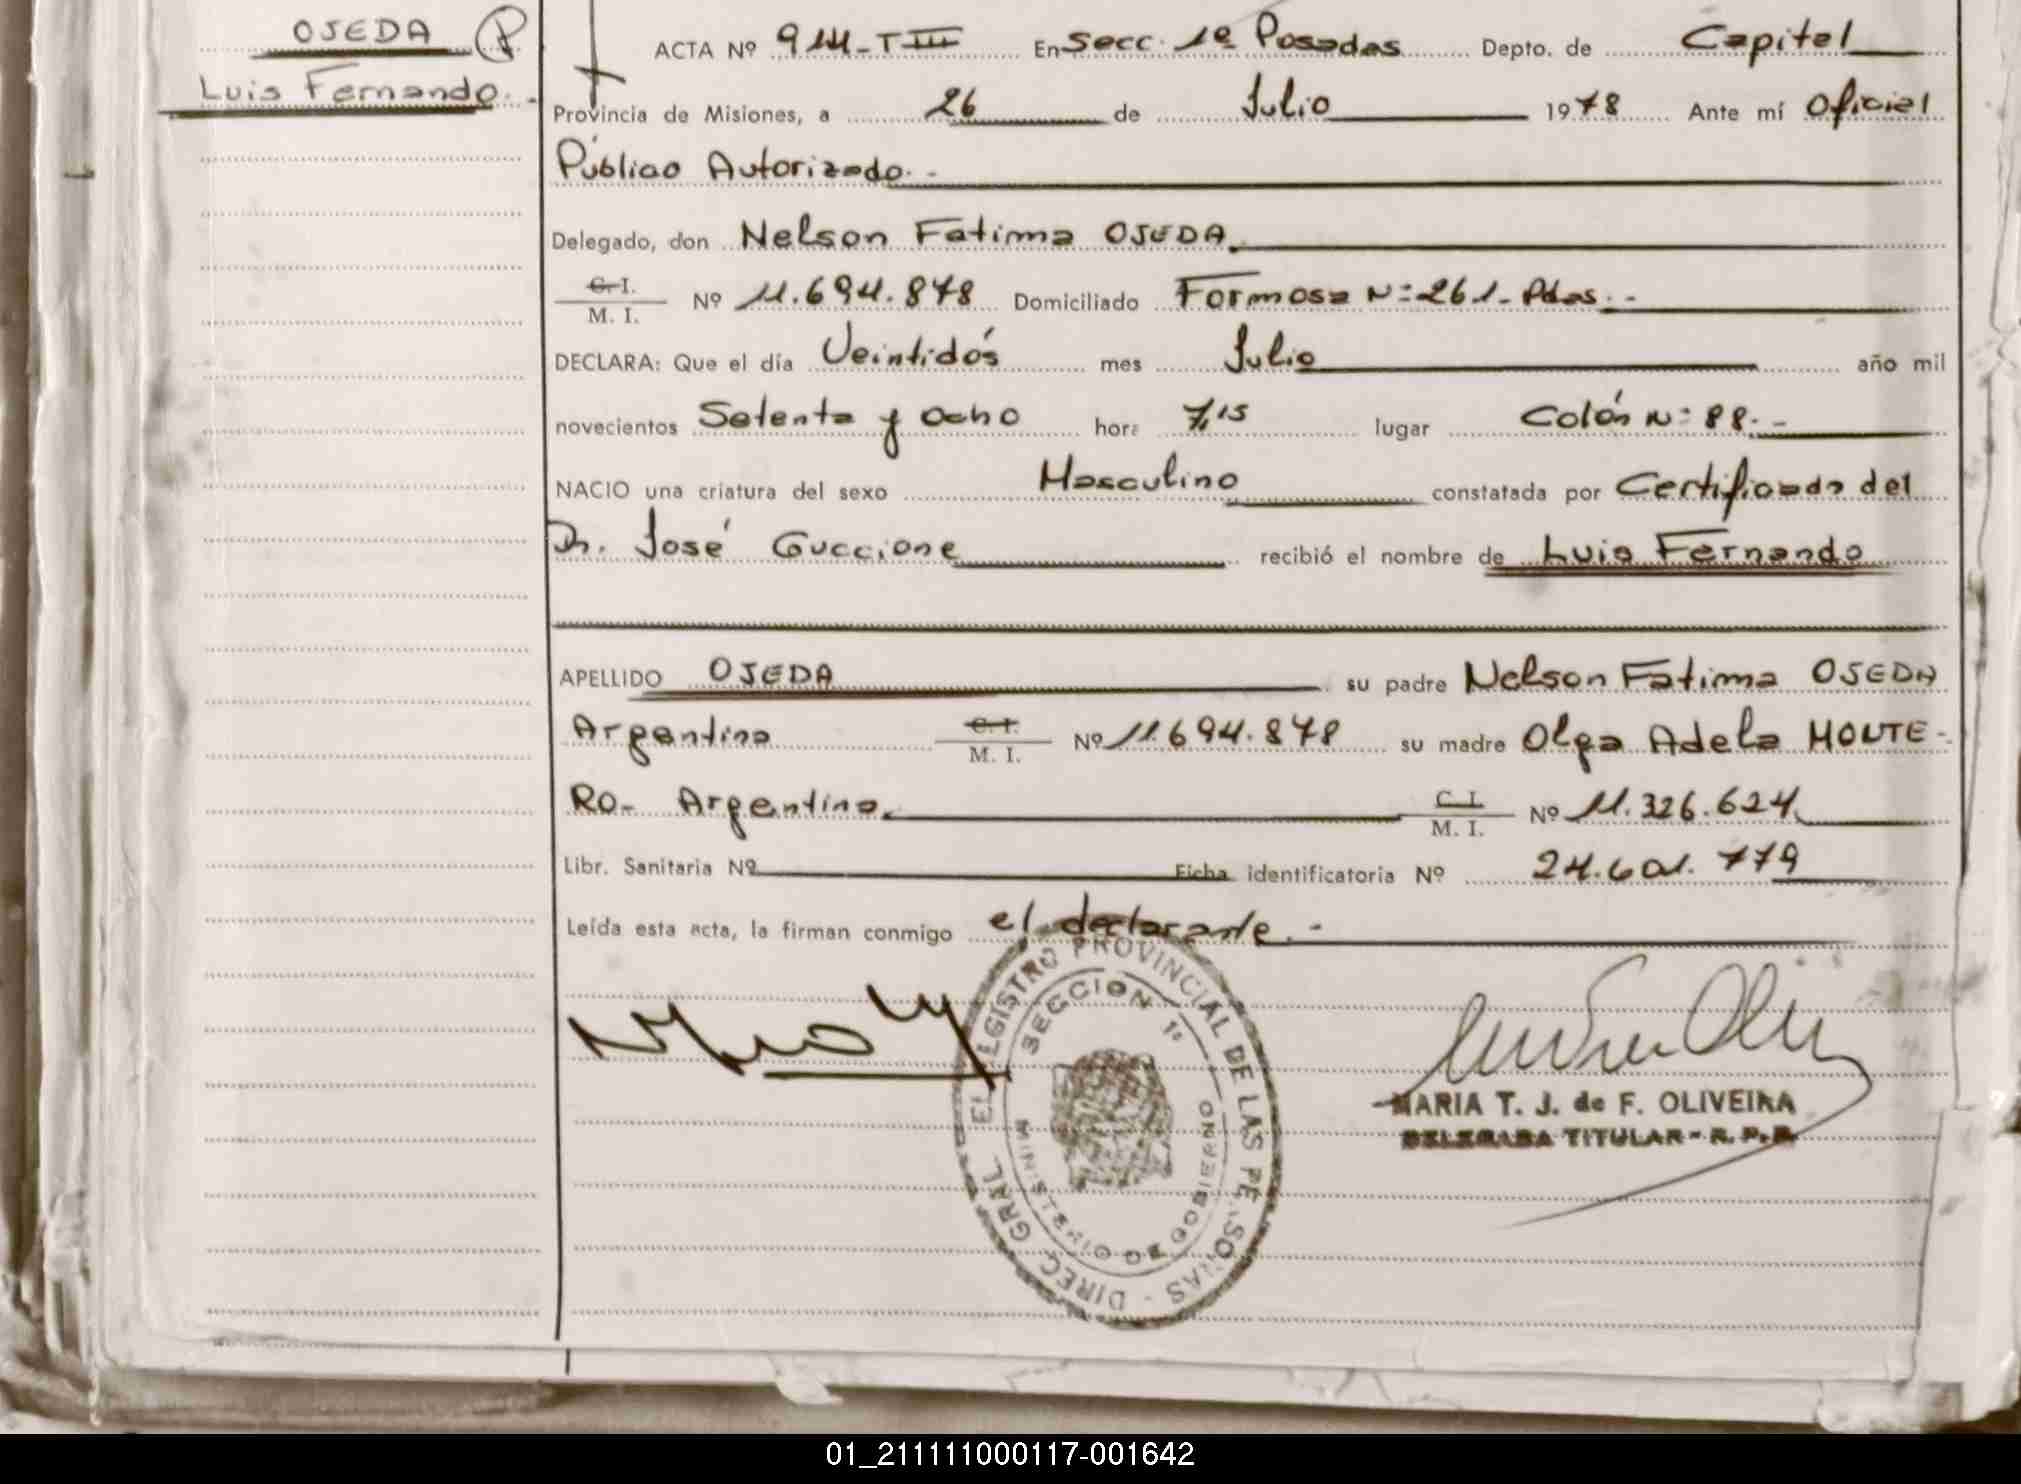 OJEDA
Luis Fernando.-
ACTA Nº 914-TIII En Secc. 1º Posadas Depto. de Capital
Provincia de Misiones, a 26 de Julio 1978 Ante mí Oficial
Público Autorizado.-
Delegado, don Nelson Fatima OJEDA.
C. I.
M. I. Nº 11.694.878 Domiciliado Formosa Nº 261- Pdas.-
DECLARA: Que el día Veintidós mes Julio año mil
novecientos Setenta y Ocho hora 7,15 lugar Colón Nº 88.-
NACIO una criatura del sexo Masculino constatada por Certificado del
Dr. José Guccione recibió el nombre de Luis Fernando
APELLIDO OJEDA su padre Nelson Fatima OJEDA
Argentino C. I. M. I. Nº 11.694.878 su madre Olga Adela MONTE-
RO- Argentina. C. I. M. I. Nº 11.326.624
Libr. Sanitaria Nº Ficha identificatoria Nº 24.601.779
Leída esta acta, la firman conmigo el declarante.-
DIREC. GRAL. EL REGISTRO PROVINCIAL DE LAS PERSONAS
SECCION 1º
MINISTERIO DE GOBIERNO
MARIA T. J. de F. OLIVEIRA
DELEGADA TITULAR - R. P. P.
01_211111000117-001642